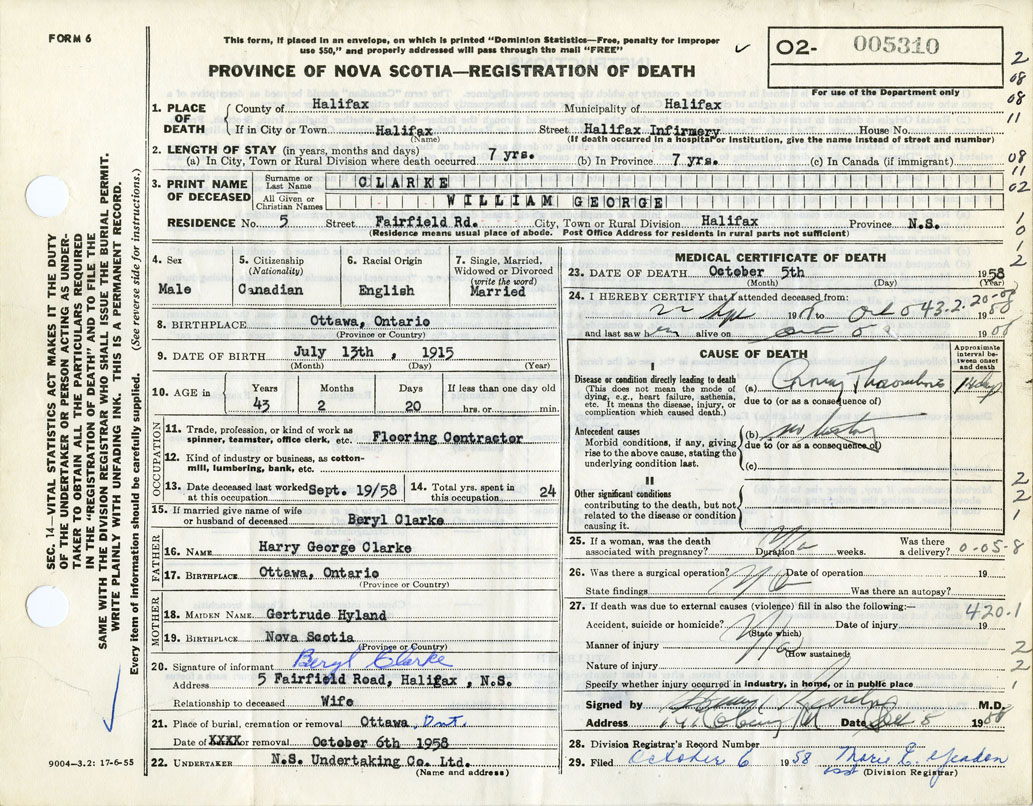 FORM 6
This form, if placed in an envelope, on which is printed "Dominion Statistics—Free, penalty for improper
use $50," and properly addressed will pass through the mail "FREE"
PROVINCE OF NOVA SCOTIA—REGISTRATION OF DEATH
02- 005310
For use of the Department only
SEC. 14—VITAL STATISTICS ACT MAKES IT THE DUTY
OF THE UNDERTAKER OR PERSON ACTING AS UNDER-
TAKER TO OBTAIN ALL THE PARTICULARS REQUIRED
IN THE "REGISTRATION OF DEATH" AND TO FILE THE
SAME WITH THE DIVISION REGISTRAR WHO SHALL ISSUE THE BURIAL PERMIT.
WRITE PLAINLY WITH UNFADING INK. THIS IS A PERMANENT RECORD.
Every item of information should be carefully supplied. (See reverse side for instructions.)
1. PLACE OF DEATH
County of Halifax Municipality of Halifax
If in City or Town Halifax Street Halifax Infirmery House No.
(Name) (If death occurred in a hospital or institution, give the name instead of street and number)
2. LENGTH OF STAY (in years, months and days)
(a) In City, Town or Rural Division where death occurred 7 yrs. (b) In Province 7 yrs. (c) In Canada (if immigrant)
3. PRINT NAME OF DECEASED
Surname or Last Name CLARKE
All Given or Christian Names WILLIAM GEORGE
RESIDENCE No. 5 Street Fairfield Rd. City, Town or Rural Division Halifax Province N.S.
(Residence means usual place of abode. Post Office Address for residents in rural parts not sufficient)
4. Sex
Male
5. Citizenship
(Nationality)
Canadian
6. Racial Origin
English
7. Single, Married,
Widowed or Divorced
(write the word)
Married
8. BIRTHPLACE Ottawa, Ontario
(Province or Country)
9. DATE OF BIRTH July 13th, 1915
(Month) (Day) (Year)
10. AGE in
Years Months Days If less than one day old
43 2 20 hrs. or min.
OCCUPATION
11. Trade, profession, or kind of work as
spinner, teamster, office clerk, etc. Flooring Contractor
12. Kind of industry or business, as cotton-
mill, lumbering, bank, etc.
13. Date deceased last worked
at this occupation Sept. 19/58
14. Total yrs. spent in
this occupation 24
15. If married give name of wife
or husband of deceased Beryl Clarke
FATHER
16. NAME Harry George Clarke
17. BIRTHPLACE Ottawa, Ontario
(Province or Country)
MOTHER
18. MAIDEN NAME Gertrude Hyland
19. BIRTHPLACE Nova Scotia
(Province or Country)
20. Signature of informant Beryl Clarke
Address 5 Fairfield Road, Halifax, N.S.
Relationship to deceased Wife
21. Place of burial, cremation or removal Ottawa, Ont.
Date of XXXX or removal October 6th 1958
22. UNDERTAKER N.S. Undertaking Co. Ltd.
(Name and address)
9004—3.2: 17-6-55
MEDICAL CERTIFICATE OF DEATH
23. DATE OF DEATH October 5th 1958
(Month) (Day) (Year)
24. I HEREBY CERTIFY that I attended deceased from:
22 19 to Oct 5 1958
43.2.20-08
and last saw h alive on Oct 5 19
CAUSE OF DEATH
Approximate
interval be-
tween onset
and death
I
Disease or condition directly leading to death
(This does not mean the mode of
dying, e.g., heart failure, asthenia,
etc. It means the disease, injury, or
complication which caused death.)
(a) Coronary Thrombosis
due to (or as a consequence of)
Antecedent causes
Morbid conditions, if any, giving
rise to the above cause, stating the
underlying condition last.
(b)
due to (or as a consequence of)
(c)
II
Other significant conditions
contributing to the death, but not
related to the disease or condition
causing it.
25. If a woman, was the death
associated with pregnancy? Duration weeks. Was there
a delivery? 0-05-8
26. Was there a surgical operation? No Date of operation 19
State findings Was there an autopsy?
27. If death was due to external causes (violence) fill in also the following:—
420.1
Accident, suicide or homicide? Date of injury 19
(State which)
Manner of injury
(How sustained)
Nature of injury
Specify whether injury occurred in industry, in home, or in public place
Signed by M.D.
Address Date Oct 5 1958
28. Division Registrar's Record Number
29. Filed October 6 1958 Marie E.
(Division Registrar)
2
08
08
11
08
11
02
1
0
1
2
2
2
1
2
2
1